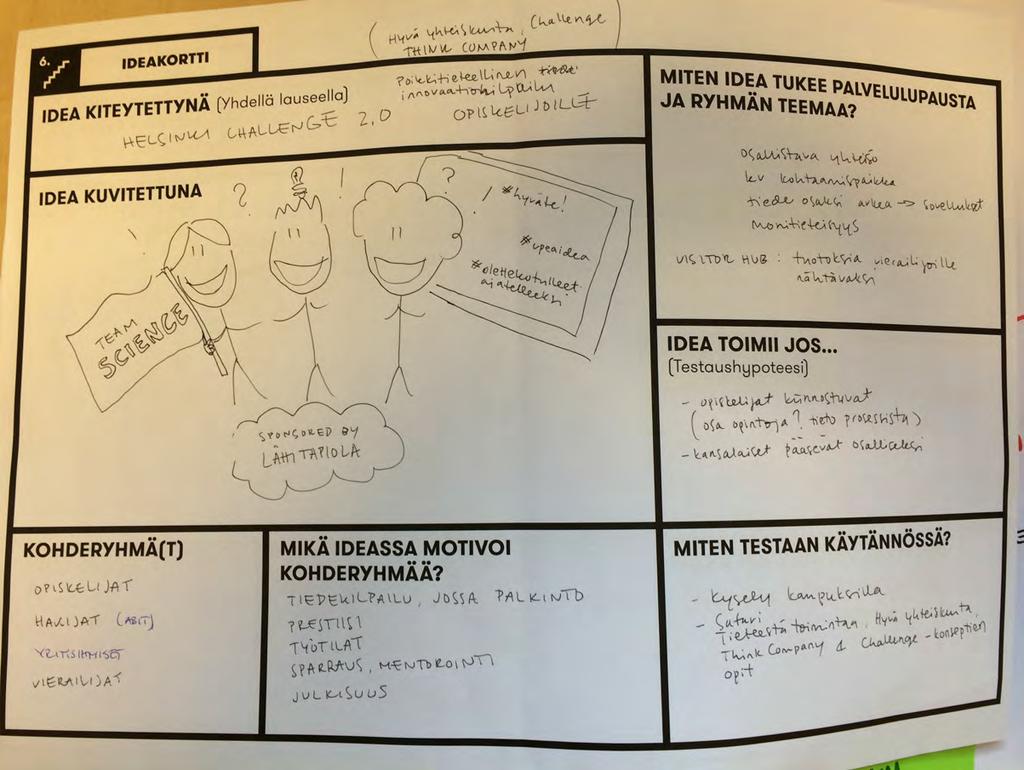 (Hyvä yhteiskunta, Challenge
THINK COMPANY
6.
IDEAKORTTI
IDEA KITEYTETTYNÄ (Yhdellä lauseella)
Poikkitieteellinen tiede
innovaatiokilpailu
HELSINKI CHALLENGE 2.0
OPISKELIJOILLE
IDEA KUVITETTUNA
? ! ?
! !
#hyväte!
#upeaidea
#olettekotulleet
ajatelleeksi
TEAM
SCIENCE
SPONSORED BY
LÄHITAPIOLA
MITEN IDEA TUKEE PALVELULUPAUSTA
JA RYHMÄN TEEMAA?
osallistava yhteisö
kv kohtaamispaikka
tiede osaksi arkea → sovellukset
monitieteisyys
VISITOR HUB : tuotoksia vierailijoille
nähtäväksi
IDEA TOIMII JOS...
(Testaushypoteesi)
- opiskelijat kiinnostuvat
(osa opintoja? tieto prosessista)
- kansalaiset pääsevät osalliseksi
KOHDERYHMÄ(T)
OPISKELIJAT
HAKIJAT (ABIT)
YRITYSIHMISET
VIERAILIJAT
MIKÄ IDEASSA MOTIVOI
KOHDERYHMÄÄ?
TIEDEKILPAILU, JOSSA PALKINTO
PRESTIISI
TYÖTILAT
SPARRAUS, MENTOROINTI
JULKISUUS
MITEN TESTAAN KÄYTÄNNÖSSÄ?
- Kysely kampuksilla
- Safari
Tieteestä toimintaa, Hyvä yhteiskunta,
Think Company & Challenge -konseptien
opit